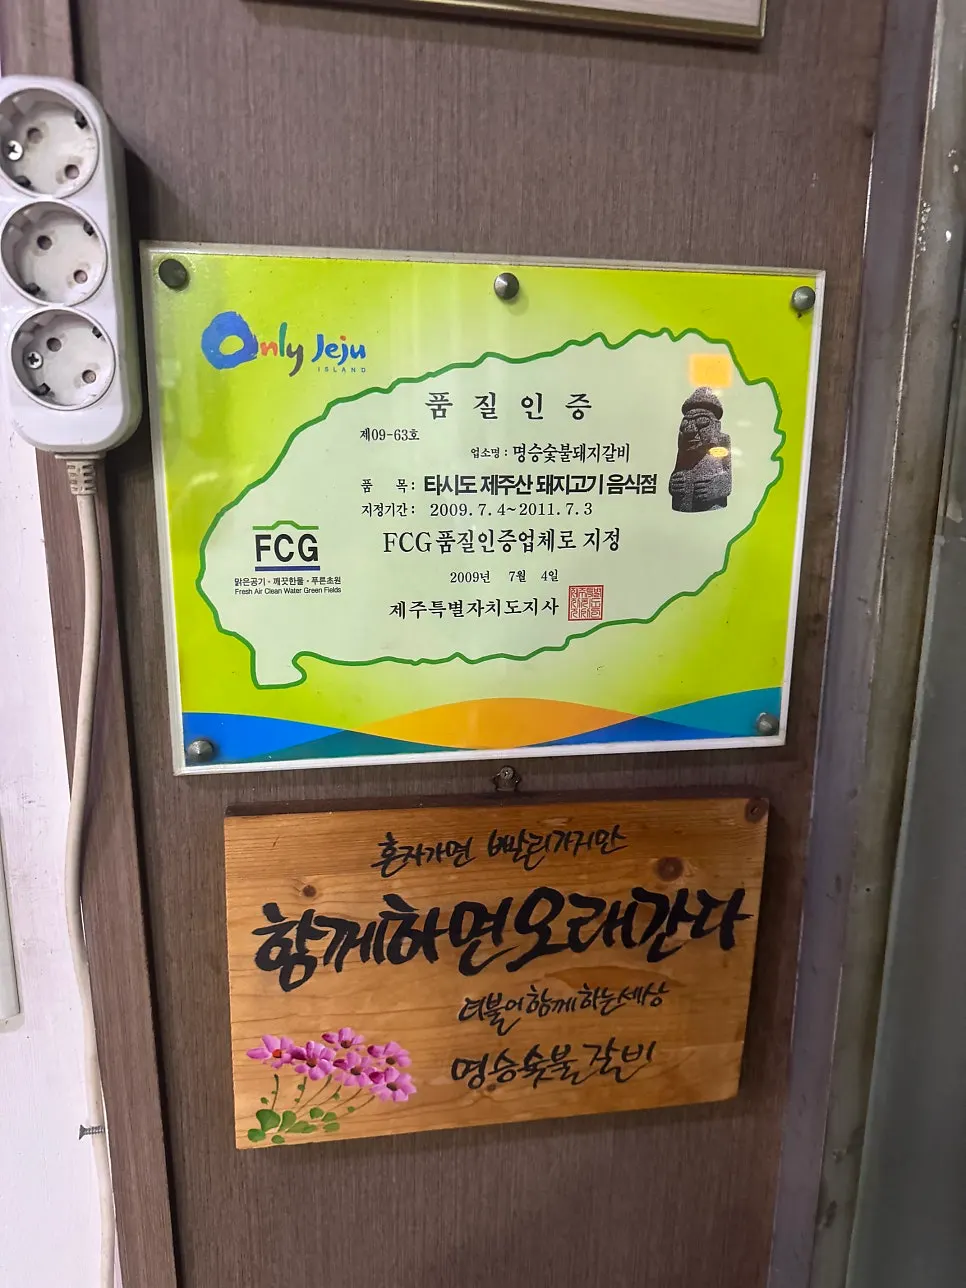 Only Jeju
ISLAND
품 질 인 증
제09-63호
업소명 : 명승숯불돼지갈비
품 목 : 타시도 제주산 돼지고기 음식점
지정기간 : 2009. 7. 4~2011. 7. 3
FCG 품질인증업체로 지정
2009년 7월 4일
제주특별자치도지사
FCG
맑은공기·깨끗한물·푸른초원
Fresh Air Clean Water Green Fields
혼자가면 빨리가지만
함께하면오래간다
더불어함께하는세상
명승숯불갈비